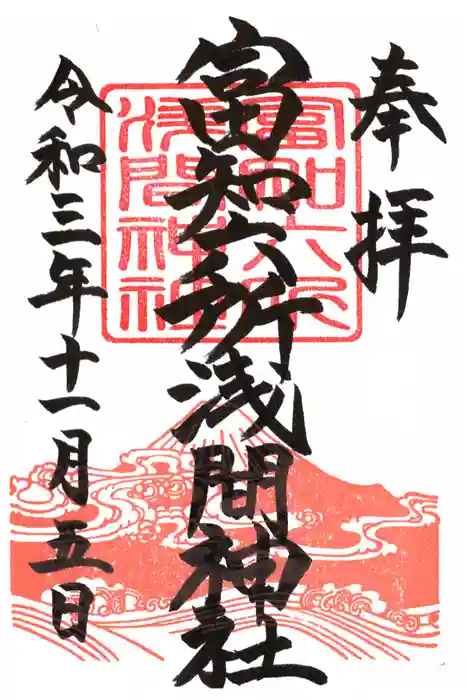 奉拝
富知六所浅間神社
富知六所
浅間神社
令和三年十一月五日